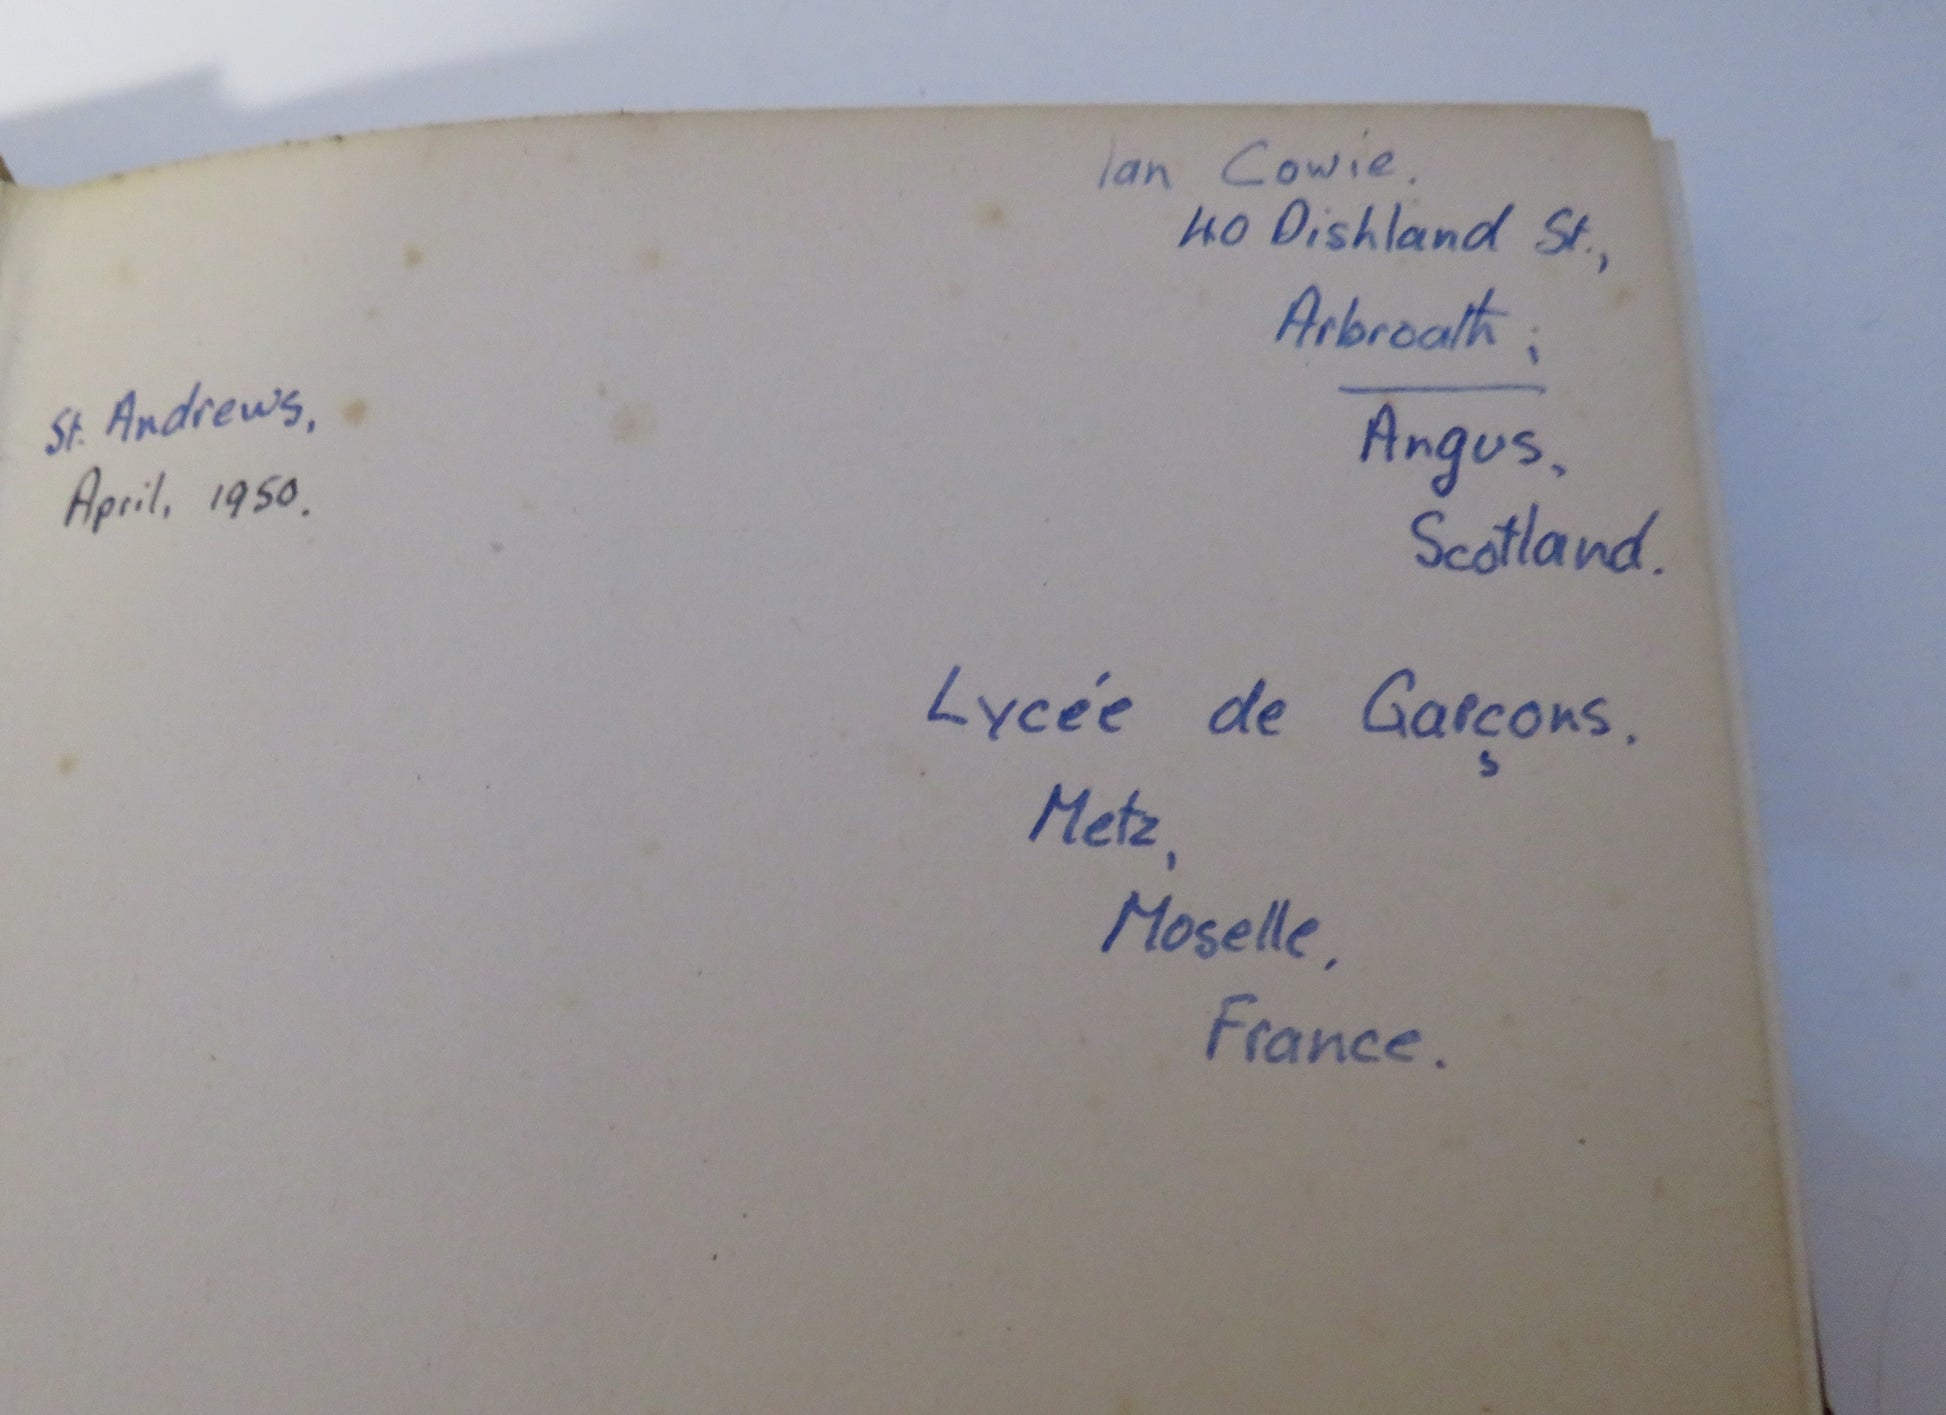 Ian Cowie.
40 Dishland St.,
Arbroath;
Angus,
Scotland.
St. Andrews,
April, 1950.
Lycée de Garçons.
Metz,
Moselle,
France.